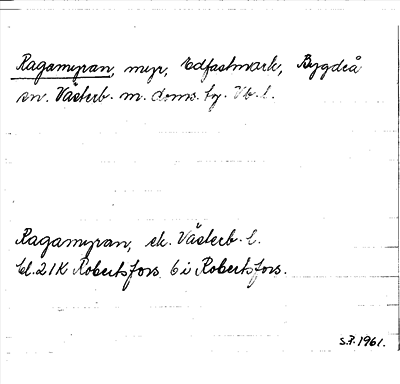 Ragamyran, myr, Edfastmark, Bygdeå
sn. Västerb. m. doms. tg. Vb. l.
Ragamyran, ek. Västerb. l.
bl. 21K Robertsfors 6i Robertsfors.
S.F. 1961.